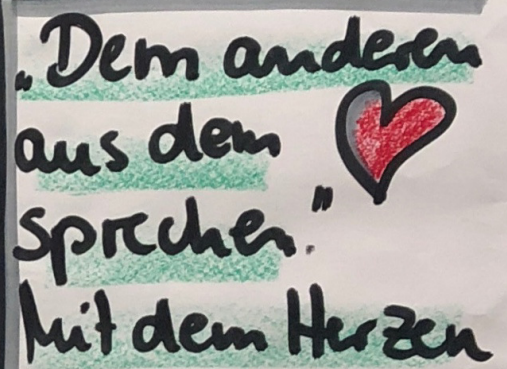 „Dem anderen
aus dem
sprechen."
Mit dem Herzen